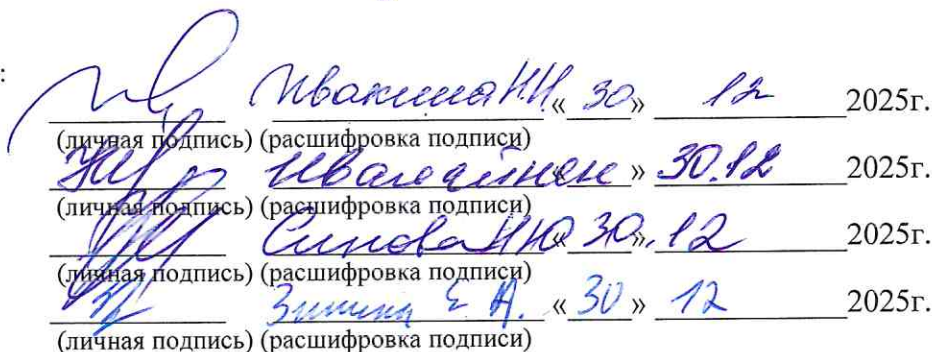 :
Ивакина Н.И. « 30 » 12 2025г.
(личная подпись) (расшифровка подписи)
» 30.12 2025г.
(личная подпись) (расшифровка подписи)
« 30 » 12 2025г.
(личная подпись) (расшифровка подписи)
Зимина Е. А. « 30 » 12 2025г.
(личная подпись) (расшифровка подписи)